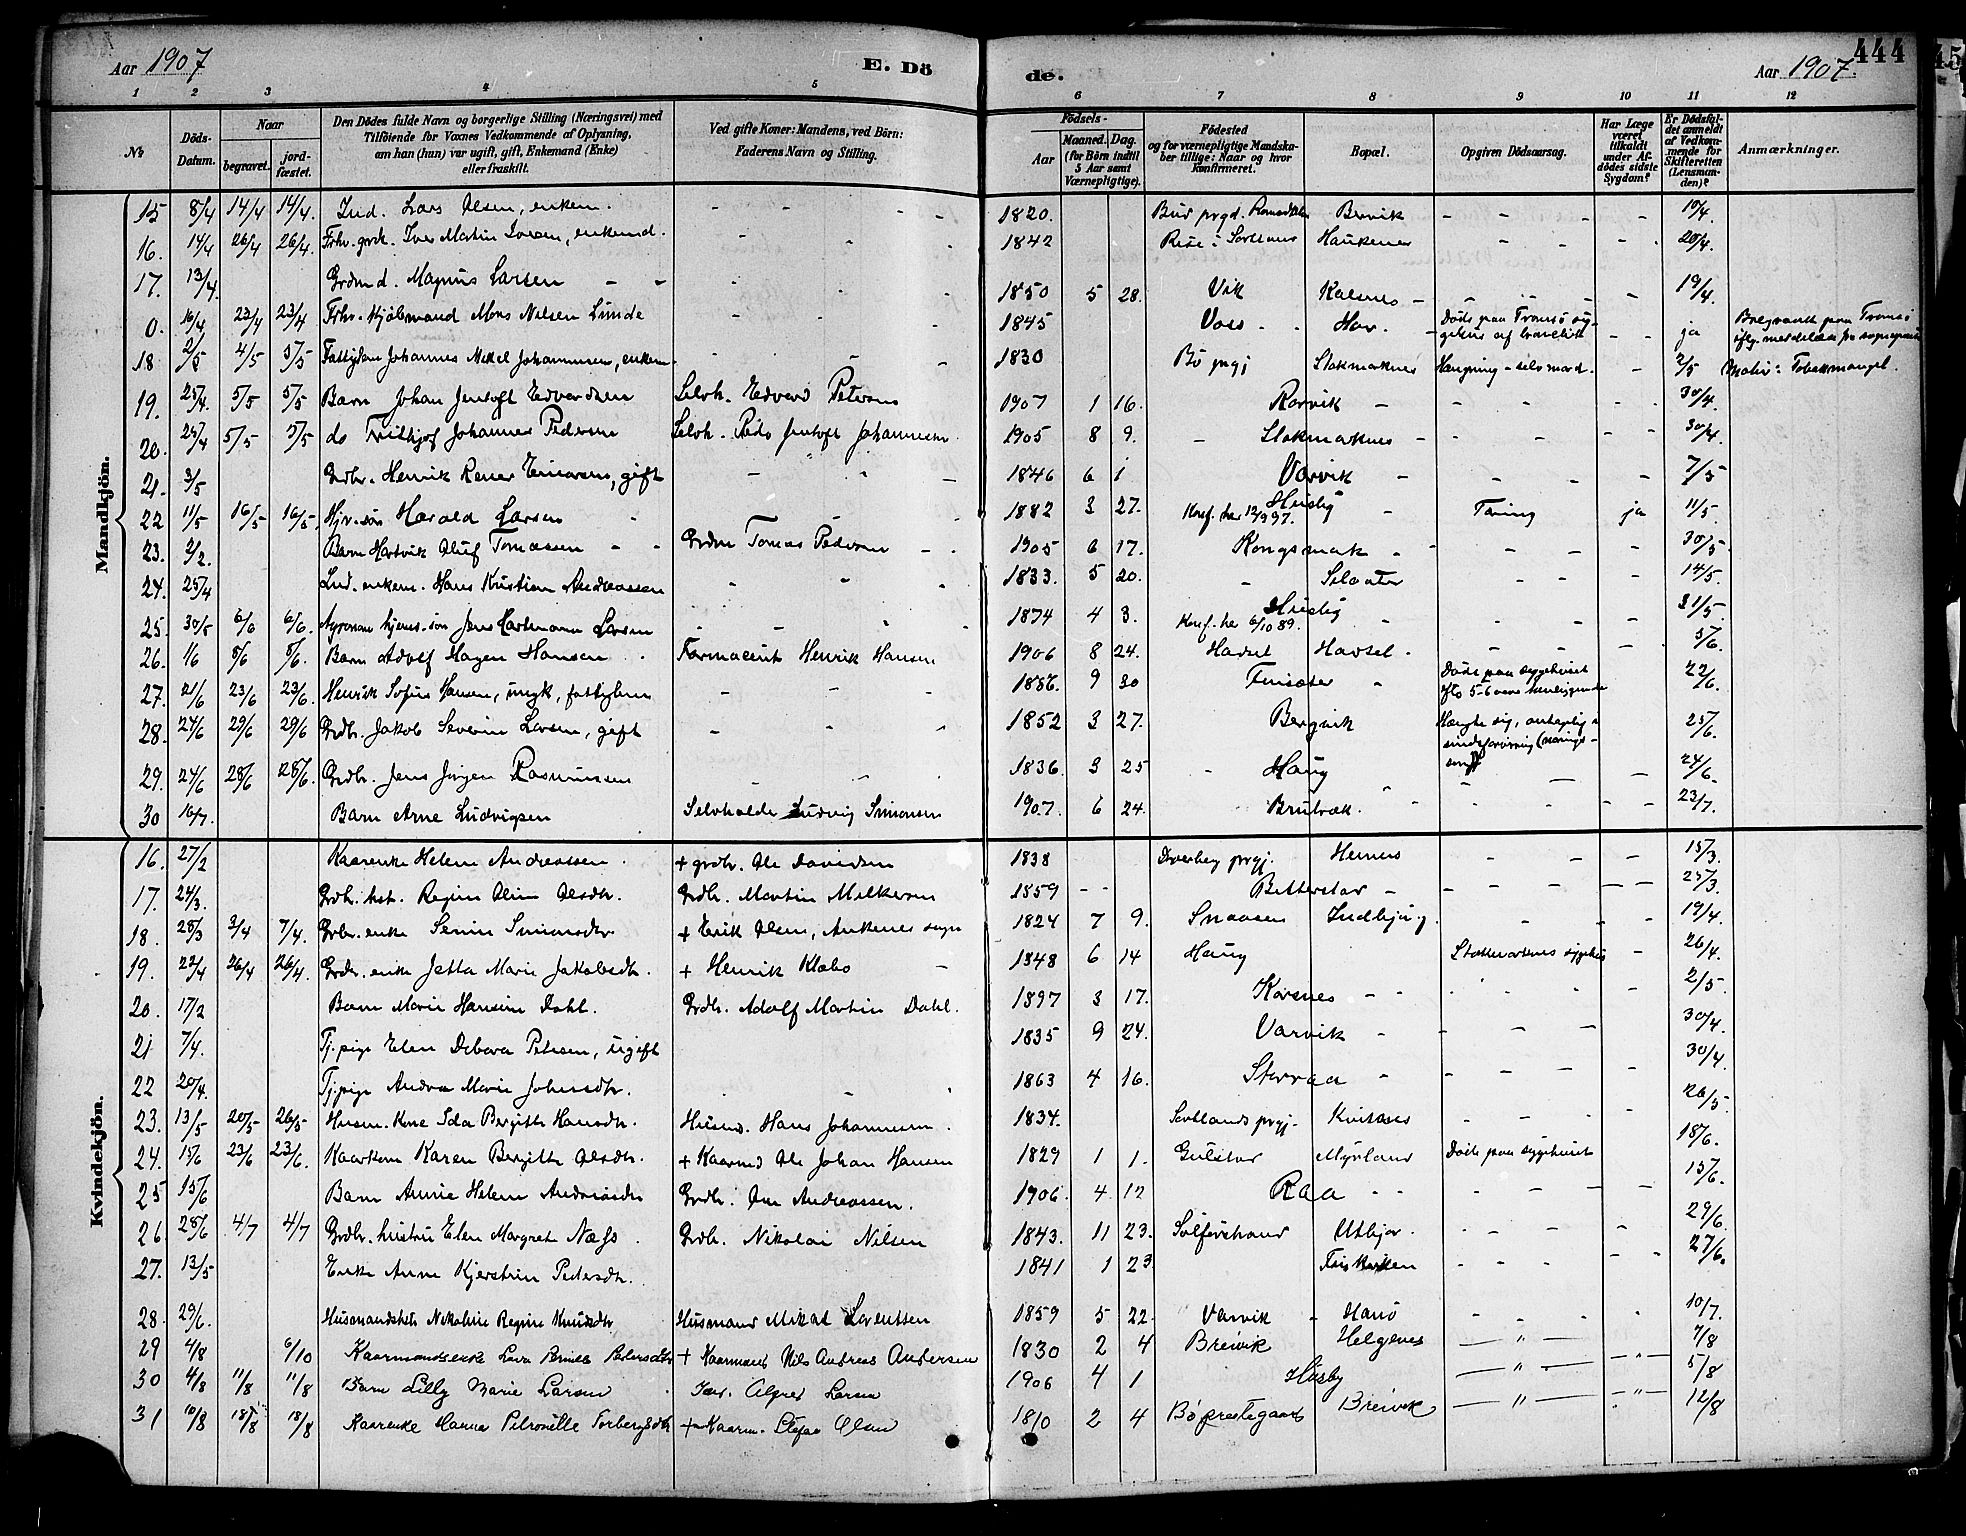 Aar 1907 E. Dö de. Aar 1907. 444
1 2 3 4 5 6 7 8 9 10 11 12
No Döds-Datum. Naar begravet. jordfæstet. Den Dödes fulde Navn og borgerlige Stilling (Næringsvei) med Tilföiende for Voxnes Vedkommende af Oplysning, am han (hun) var ugift, gift, Enkemand (Enke) eller fraskilt. Ved gifte Koner: Mandens, ved Börn: Faderens Navn og Stilling. Födsels- Aar Maaned. Dag. (for Börn indtil 5 Aar samt Værnepligtige). Födested og for værnepligtige Mandskaber tillige: Naar og hvor konfirmeret. Bopæl. Opgiven Dödsaarsag. Har Læge været tilkaldt under Afdödes sidste Sygdom? Er Dödsfaldet anmeldt af Vedkommende for Skifteretten (Lensmanden)? Anmærkninger.
Mandkjön.
15 8/4 14/4 14/4. Ind. Lars Olsen, enkem. 1820. Bud prgd. Romsdalen Bervik 19/4.
16. 14/4 26/4 26/4. Fhv. grdr. Iver Martin Larsen, enkemd. 1842 Risø i Sortland Haukenes 20/4.
17. 13/4. Grdmd. Magnus Larsen 1850 5 28. Vik Kalsnes 19/4.
0. 16/4 23/4 23/4 Fhv. Kjøbmand Mons Nilsen Lunde 1845 Voss Hav. Døde paa Tromsø sygehus af ja Begravet paa Tromsø iflg. meddelelse fra sogneprest
18 2/5 4/5 5/5 Fattiglem Johannes Mikal Johannessen, enkem. 1830 Bø prgj Stokmarknes Hængning - selvmord. 2/5 Motiv: Tobakmangel.
19. 25/4. 5/5 5/5 Barn Johan Jentoft Edvardsen Selvh. Edvard Petersen 1907 1 16. Rørvik 30/4.
20. 25/4 5/5 5/5 do Fridtjof Johannes Pedersen Selvh. Peder Jentoft Johannessen. 1905 8 9. Stokmarknes 30/4.
21. 3/5 Grdbr. Henrik Rener Einarsen, gift 1846 6 1 Varvik 7/5
22 11/5 16/5 16/5. Hjv. søn Harald Larsen 1882 3 27. Husby Konf. her 12/9 97. Tæring ja 11/5.
23. 2/2. Barn Hartvik Oluf Tomassen Grdm Tomas Pedersen 1905 6 17. Kongsmark 30/5.
24. 25/4 Ind. enkem. Hans Kristian Andreassen 1833. 5 20. Slaater 14/5.
25. 30/5 6/6 6/6. Agronom hjems. søn Jens Hartmann Larsen 1874 4 3. Husby Konf. her 6/10 89. 31/5.
26. 1/6 8/6 8/6. Barn Adolf Hagen Hansen Farmaceut Henrik Hansen 1906 8 24. Hadsel Hadsel. 5/6.
27. 21/6 23/6 23/6. Henrik Sofus Hansen, ungk, fattiglem 1856. 9 30 Finsæter Døde paa sygehuset efter 5-6 22/6.
28. 24/6 29/6 29/6 Grdbr. Jakob Severin Larsen, gift 1852 3 27. Bergvik Hængte sig, antagelig i sindsforvirring (nærings-sorg) 25/6.
29. 24/6 28/6 28/6. Grdbr. Jens Jørgen Rasmussen 1836. 3 25 Haug 24/6.
30 16/7. Barn Arne Ludvigsen Selvholde Ludvig Simonsen 1907. 6 24. Brudvæk. 23/7.
Kvindekjön.
16. 27/2 Kaarenke Helene Andreassen. + grdbr. Ole Davidsen 1838 Dverberg prgj. Hemnes 15/3.
17. 24/3. Grdbr. hst. Regine Oline Olsdtr. Grdbr. Martin Melkersen 1859 Bitterstad 25/3.
18. 28/3 3/4 7/4. Grdbr. enke Simonsdtr + Erik Olsen, Ankenes sogn 1824 7 9. Snaasen Indbjørg. 19/4.
19. 22/4 26/4 26/4. Grdbr. enke Jetta Marie Jakobsdtr. + Henrik Klæbo 1848 6 14 Haug Stokmarknes sygehus 26/4.
20. 17/2 Barn Marie Hansine Dahl. Grdbr. Adolf Martin Dahl. 1897 3 17. Korsnes 2/5.
21 7/4. Tj. pige Elen Debora Petersen, ugift 1835 9 24. Varvik 30/4.
22 20/4. Tj. pige Andrea Marie Johnsdtr. 1863 4 16. Steiraa 30/4
23. 13/5 20/5 26/5 Husm. Kone Ida Bergitte Hansdtr. Husmd. Hans Johannessen. 1834. Sortlands prgj. Kvitnes 26/5.
24. 15/6 23/6 23/6. Kaarkone Karen Bergitte Olsdtr. + Kaarmd Ole Johan Hansen 1829 1 1. Gulstad Myrland Døde paa sygehuset 18/6.
25 15/6 Barn Annie Helene Andreasdtr Grdbr. Andreassen. 1906. 4 12 Raa 15/6.
26 28/6 4/7 4/7 Grdbr. hustru Elen Margret Næss. Grdbr. Nikolai Nilsen 1843. 11 23. Selfjorstrand Utbjor. 29/6.
27. 13/5 Enke Anne Kjerstine Pedersdtr. 1841 1 23 Fiskarken 27/6.
28. 29/6. Husmandshst Nikoline Regine Knudsdtr Husmand Mikal Lorentsen 1859 5 22. Varvik Hanø 10/7.
29 4/8 6/10 Kaarmandsenke Lava Pernille Pedersdtr + Kaarmand Nils Andreas Andersen 1830 2 4 Breivik Helgenes " 7/8
30 4/8 11/8 11/8 Barn Lilly Marie Larsen Alfred Larsen 1906 4 1 Husby " 5/8
31 10/8 18/8 18/8 Kaarenke Hanna Petronelle Torbergsdtr + Kaarm. Olsen 1810 2 4 Bø prestegaard Breivik " 12/8